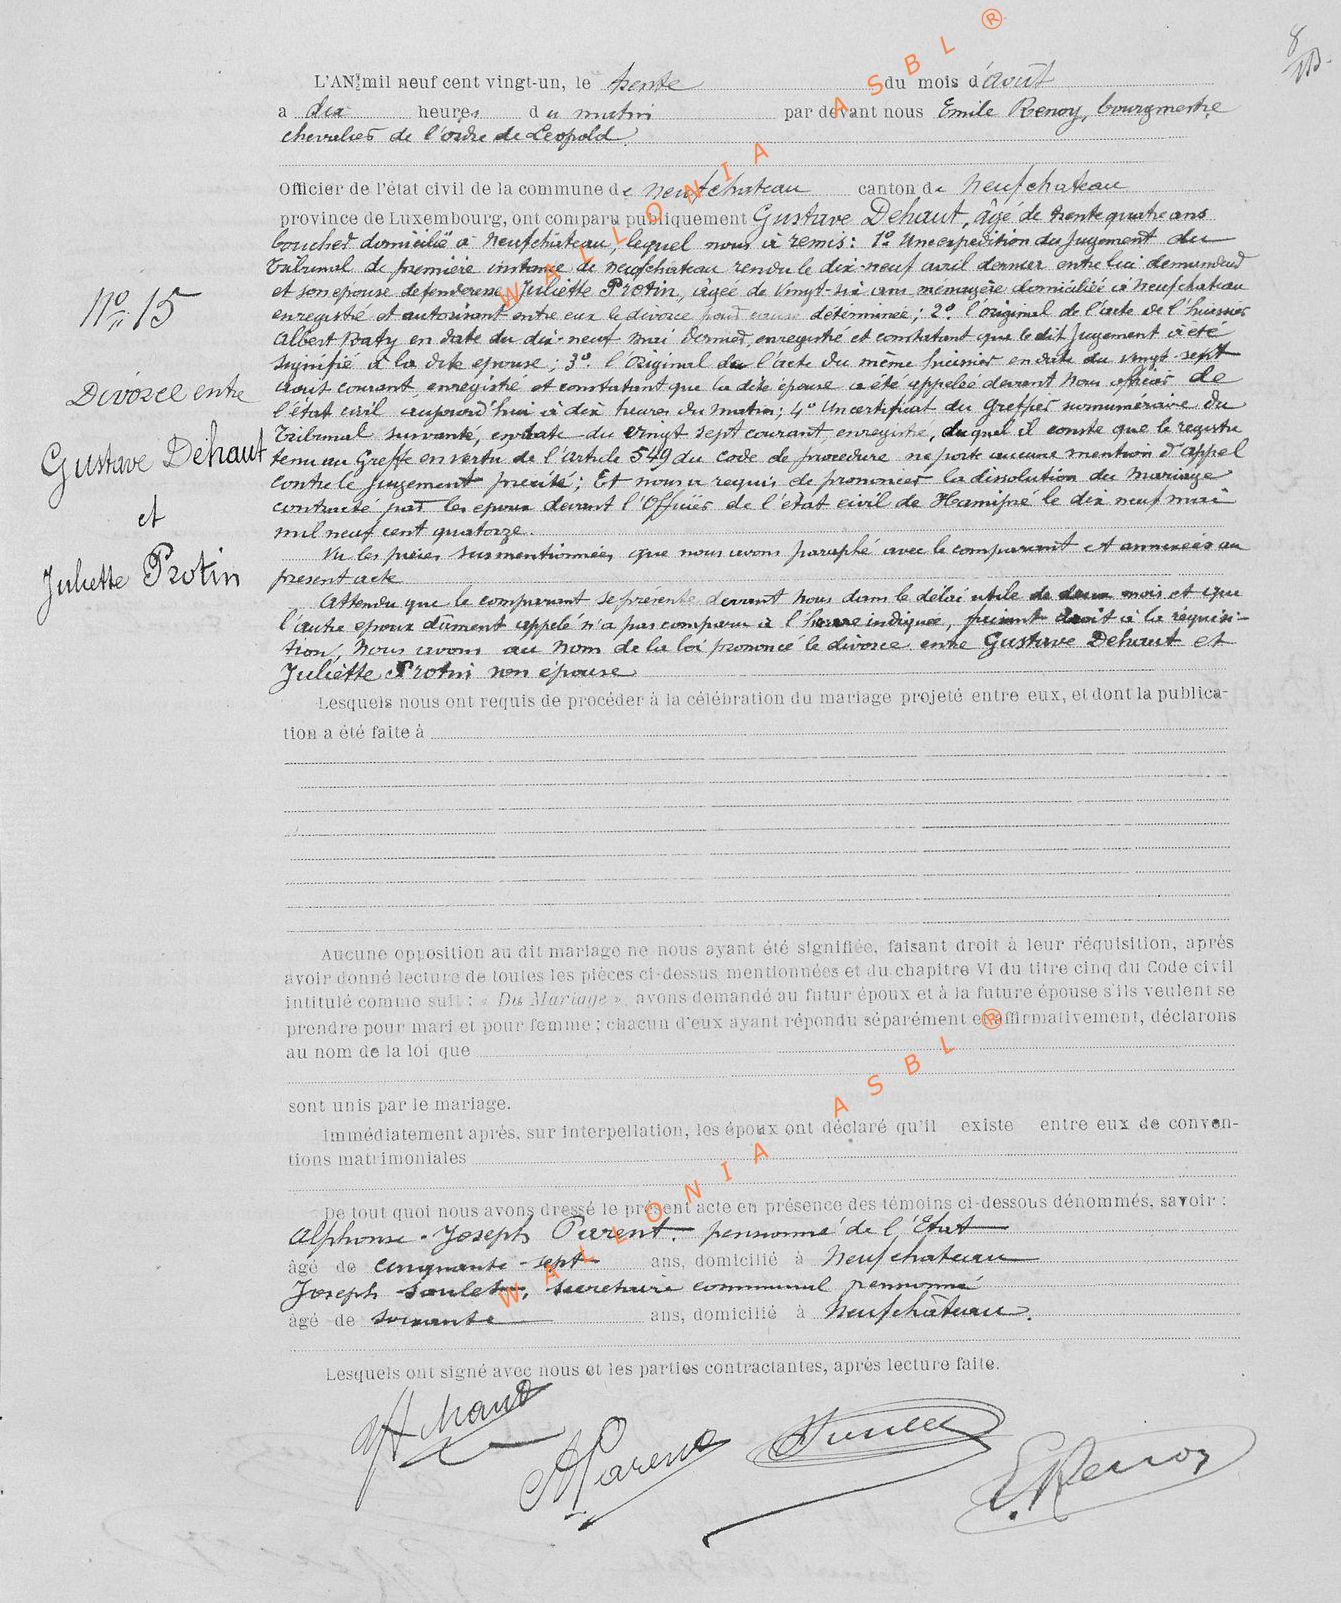 8
L'AN mil neuf cent vingt-un, le trente du mois d'août
a dix heures du matin par devant nous Emile Renoy, bourgmestre,
chevalier de l'ordre de Léopold.
Officier de l'état civil de la commune de Neufchateau canton de Neufchateau
province de Luxembourg, ont comparu publiquement Gustave Dehaut, âgé de trente quatre ans
boucher domicilié à Neufchâteau, lequel nous a remis : 1º Une expédition du Jugement du
Tribunal de première instance de Neufchateau rendu le dix-neuf avril dernier entre lui demandeur
et son epouse défenderesse Juliette Protin, âgée de vingt-six ans ménagère domiciliée à Neufchateau
enregistré et autorisant entre eux le divorce pour cause déterminée ; 2º l'original de l'acte de l'huissier
Albert en date du dix-neuf mai dernier, enregistré et constatant que le dit Jugement a été
signifié à la dite epouse ; 3º l'Original de l'acte du même huissier en date du vingt-sept
août courant, enregistré et constatant que la dite épouse a été appelée devant Nous officier de
l'état civil aujourd'hui à dix heures du matin ; 4º Un certificat du Greffier surnuméraire du
Tribunal susvanté, en date du vingt sept courant, enregistré, duquel il conste que le registre
tenu au Greffe en vertu de l'article 549 du code de procedure ne porte aucune mention d'appel
contre le Jugement précité ; Et nous a requis de prononcer la dissolution du Mariage
contracté par les epoux devant l'Officier de l'état civil de Hamipré le dix neuf mai
mil neuf cent quatorze.
Vu les pièces susmentionnées, que nous avons paraphé avec le comparant et annexées au
present acte
Attendu que le comparant se présente devant Nous dans le délai utile de deux mois et que
l'autre epoux dûment appelé n'a pas comparu à l'heure indiquée, faisant droit à la réquisi-
tion, Nous avons au Nom de la loi prononcé le divorce entre Gustave Dehaut et
Juliette Protin son épouse
Nº 15
Divorce entre
Gustave Dehaut
et
Juliette Protin
Lesquels nous ont requis de procéder à la célébration du mariage projeté entre eux, et dont la publica-
tion a été faite à
Aucune opposition au dit mariage ne nous ayant été signifiée, faisant droit à leur réquisition, après
avoir donné lecture de toutes les pièces ci-dessus mentionnées et du chapitre VI du titre cinq du Code civil
intitulé comme suit : « Du Mariage », avons demandé au futur époux et à la future épouse s'ils veulent se
prendre pour mari et pour femme ; chacun d'eux ayant répondu séparément et affirmativement, déclarons
au nom de la loi que
sont unis par le mariage.
Immédiatement après, sur interpellation, les époux ont déclaré qu'il existe entre eux de conven-
tions matrimoniales
De tout quoi nous avons dressé le présent acte en présence des témoins ci-dessous dénommés, savoir :
Alphonse-Joseph Parent. pensionné de l'Etat
âgé de cinquante-sept ans, domicilié à Neufchateau
Joseph secrétaire communal pensionné
âgé de soixante ans, domicilié à Neufchâteau.
Lesquels ont signé avec nous et les parties contractantes, après lecture faite.
A Parent
E. Renoy
WALLONIA ASBL ®
WALLONIA ASBL ®